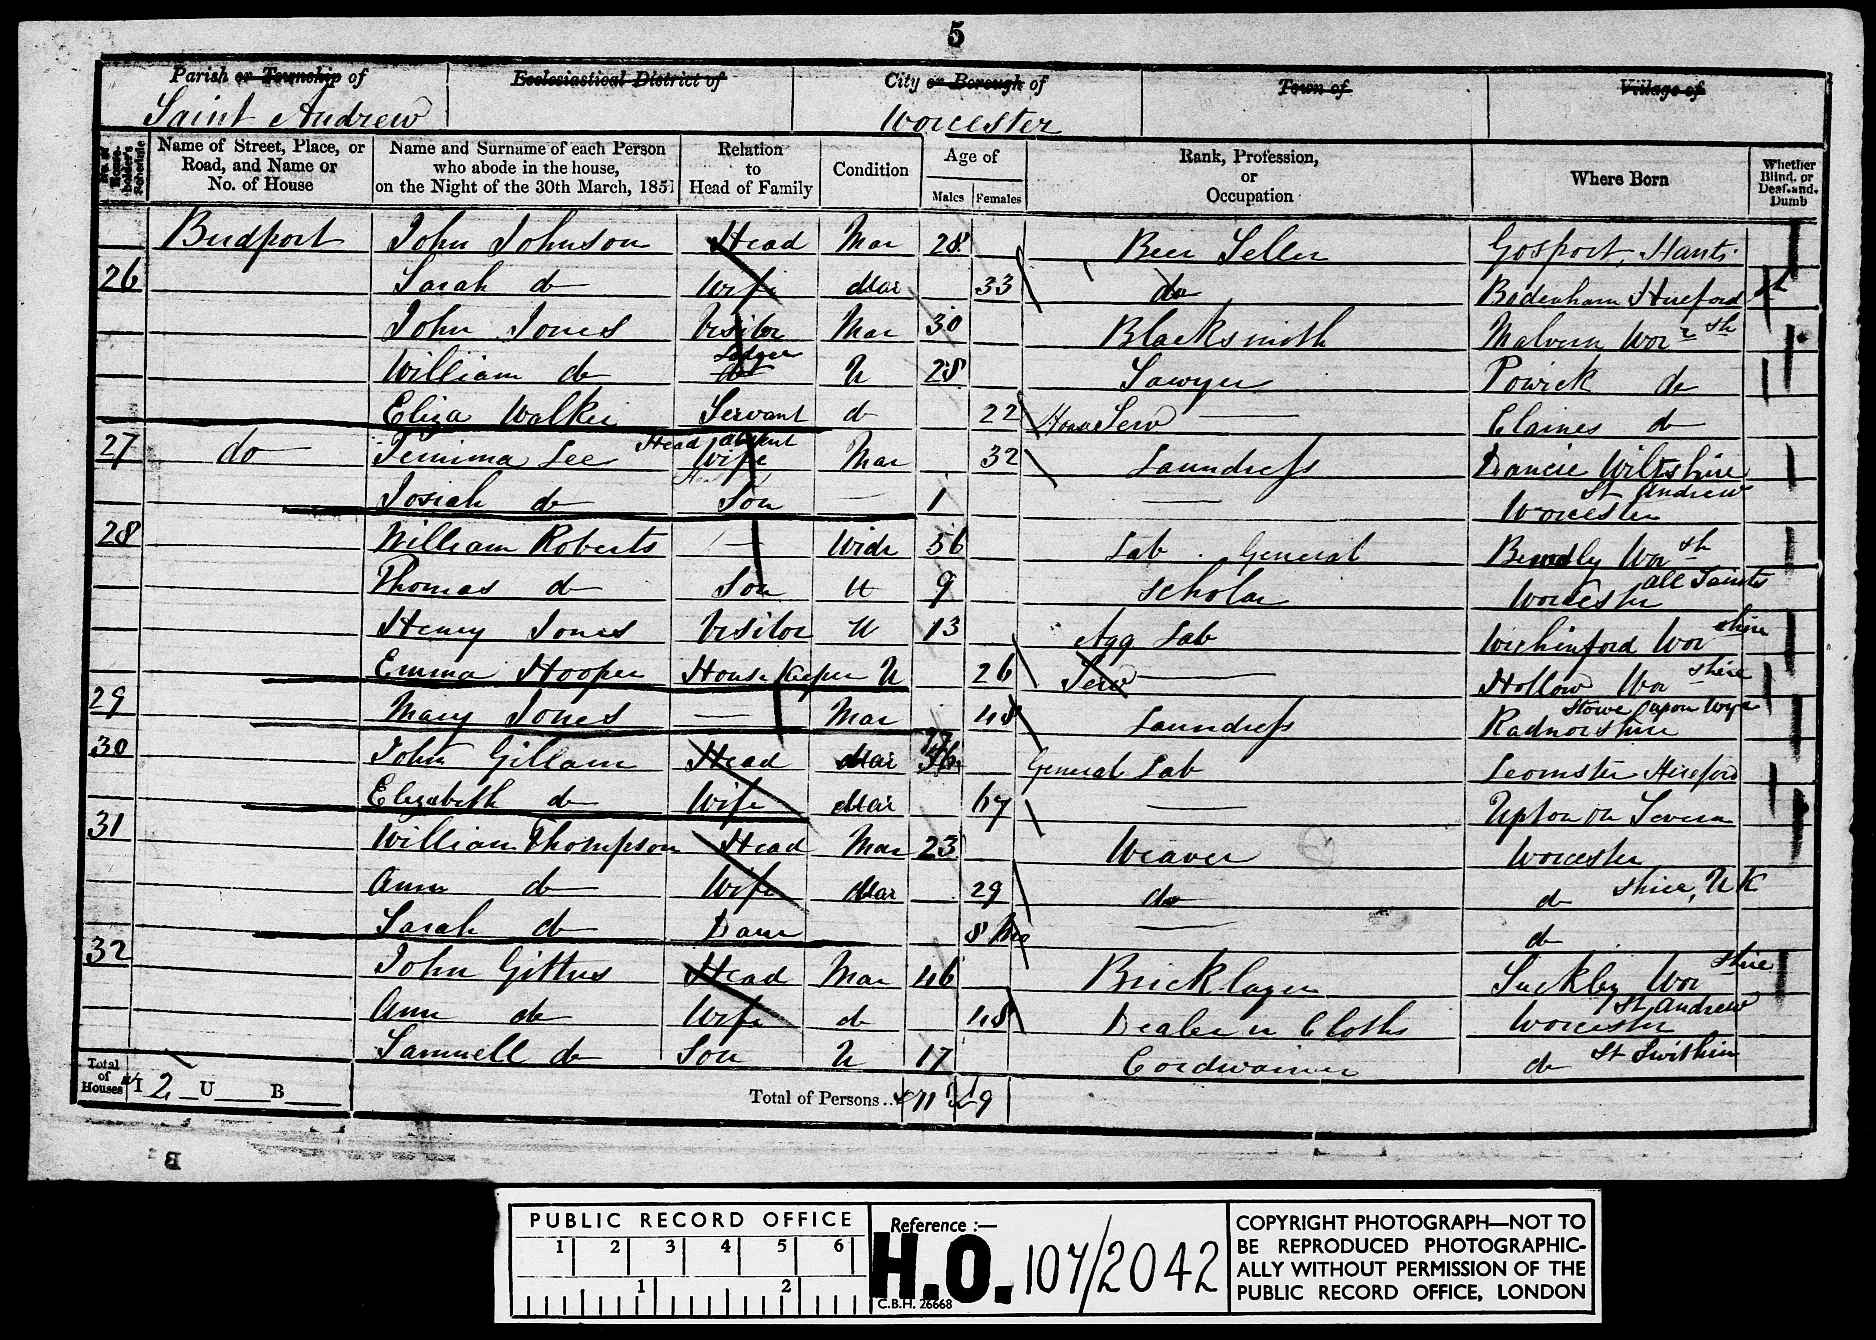 5
Parish or Township of Ecclesiastical District of City or Borough of Town of Village of
Saint Andrew Worcester
No. of House-holder's Schedule
Name of Street, Place, or Road, and Name or No. of House
Name and Surname of each Person who abode in the house, on the Night of the 30th March, 1851
Relation to Head of Family
Condition
Age of
Males Females
Rank, Profession, or Occupation
Where Born
Whether Blind, or Deaf-and-Dumb
Budport John Johnson Head Mar 28 Beer Seller Gosport, Hants
26 Sarah do Wife Mar 33 do Bodenham Hereford
John Jones Visitor Mar 30 Blacksmith Malvern Wor sh
William do Lodger do U 28 Sawyer Powick do
Eliza Walker Servant d 22 House Serv Claines do
27 do Jemima Lee Head absent Wife Mar 32 Laundress Dancie Wiltshire
Josiah do Son 1 St Andrew Worcester
28 William Roberts Widr 56 Lab. General Bewdly Wor sh
Thomas do Son U 9 Scholar All Saints Worcester
Henry Jones Visitor U 13 Agg Lab Wichinford Wor shire
Emma Hooper House Keeper U 26 Serv Hollow Wor shire
29 Mary Jones Mar 48 Laundress Stowe upon Wye Radnorshire
30 John Gillam Head Mar General Lab Leomster Hereford
Elizabeth do Wife Mar 67 Upton on Severn
31 William Thompson Head Mar 23 Weaver Worcester
Ann do Wife Mar 29 do d shire, N K
Sarah do Daur 8 Mo d
32 John Gittus Head Mar 46 Bricklayer Suckley Wor shire
Ann do Wife d 48 Dealer in Cloths St Andrew Worcester
Samuell do Son U 17 Cordwainer do St Swithin
Total of Houses I 2 U B Total of Persons... 11 9
B
PUBLIC RECORD OFFICE
1 2 3 4 5 6
1 2
Reference :—
H.O. 107/2042
C.B.H. 26668
COPYRIGHT PHOTOGRAPH—NOT TO
BE REPRODUCED PHOTOGRAPHIC-
ALLY WITHOUT PERMISSION OF THE
PUBLIC RECORD OFFICE, LONDON